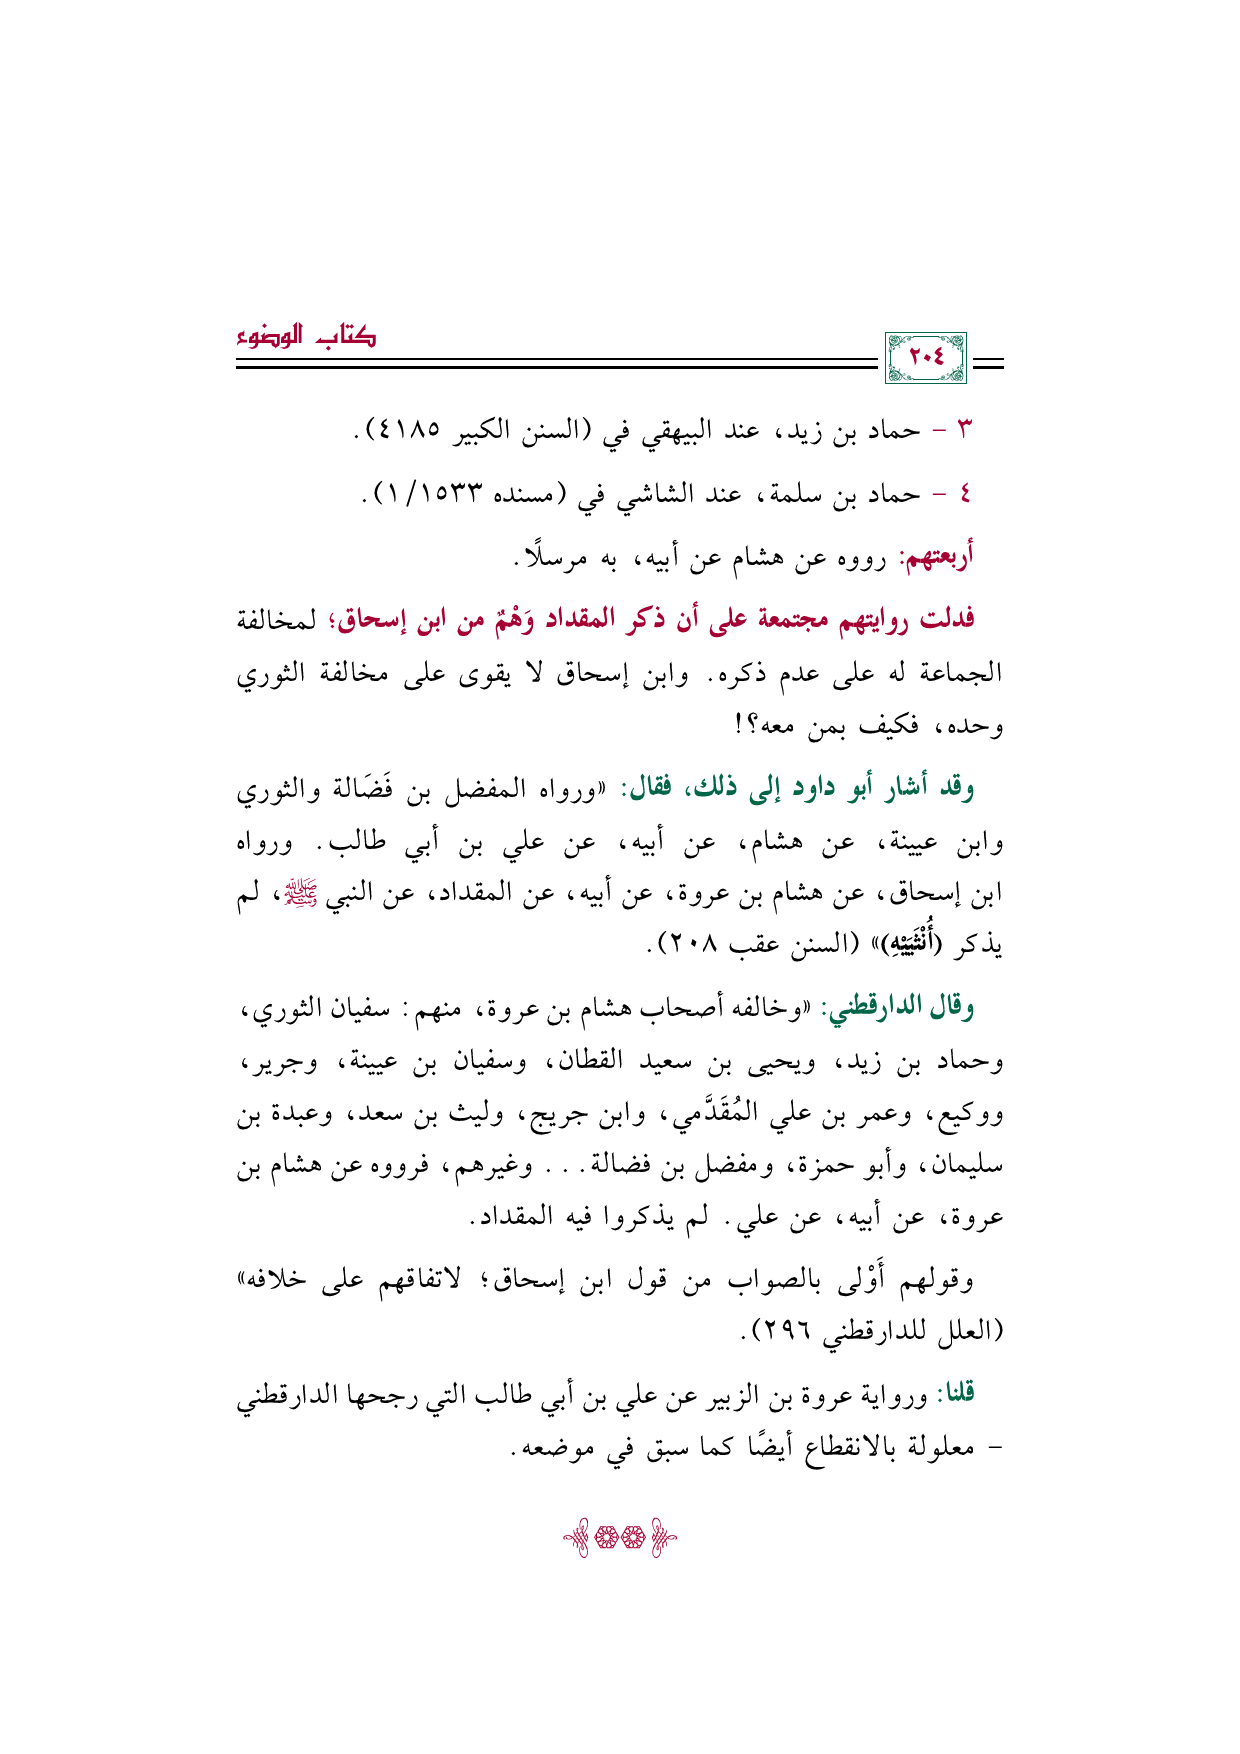 كتاب الوضوء
٢٠٤
٣ - حماد بن زيد، عند البيهقي في (السنن الكبير ٤١٨٥).
٤ - حماد بن سلمة، عند الشاشي في (مسنده ١/١٥٣٣).
أربعتهم: رووه عن هشام عن أبيه، به مرسلًا.
فدلت روايتهم مجتمعة على أن ذكر المقداد وَهْمٌ من ابن إسحاق؛ لمخالفة
الجماعة له على عدم ذكره. وابن إسحاق لا يقوى على مخالفة الثوري
وحده، فكيف بمن معه؟!
وقد أشار أبو داود إلى ذلك، فقال: «ورواه المفضل بن فَضَالة والثوري
وابن عيينة، عن هشام، عن أبيه، عن علي بن أبي طالب. ورواه
ابن إسحاق، عن هشام بن عروة، عن أبيه، عن المقداد، عن النبي ﷺ، لم
يذكر (أُنْثَيَيْهِ)» (السنن عقب ٢٠٨).
وقال الدارقطني: «وخالفه أصحاب هشام بن عروة، منهم: سفيان الثوري،
وحماد بن زيد، ويحيى بن سعيد القطان، وسفيان بن عيينة، وجرير،
ووكيع، وعمر بن علي المُقَدَّمي، وابن جريج، وليث بن سعد، وعبدة بن
سليمان، وأبو حمزة، ومفضل بن فضالة... وغيرهم، فرووه عن هشام بن
عروة، عن أبيه، عن علي. لم يذكروا فيه المقداد.
وقولهم أَوْلى بالصواب من قول ابن إسحاق؛ لاتفاقهم على خلافه»
(العلل للدارقطني ٢٩٦).
قلنا: ورواية عروة بن الزبير عن علي بن أبي طالب التي رجحها الدارقطني
- معلولة بالانقطاع أيضًا كما سبق في موضعه.